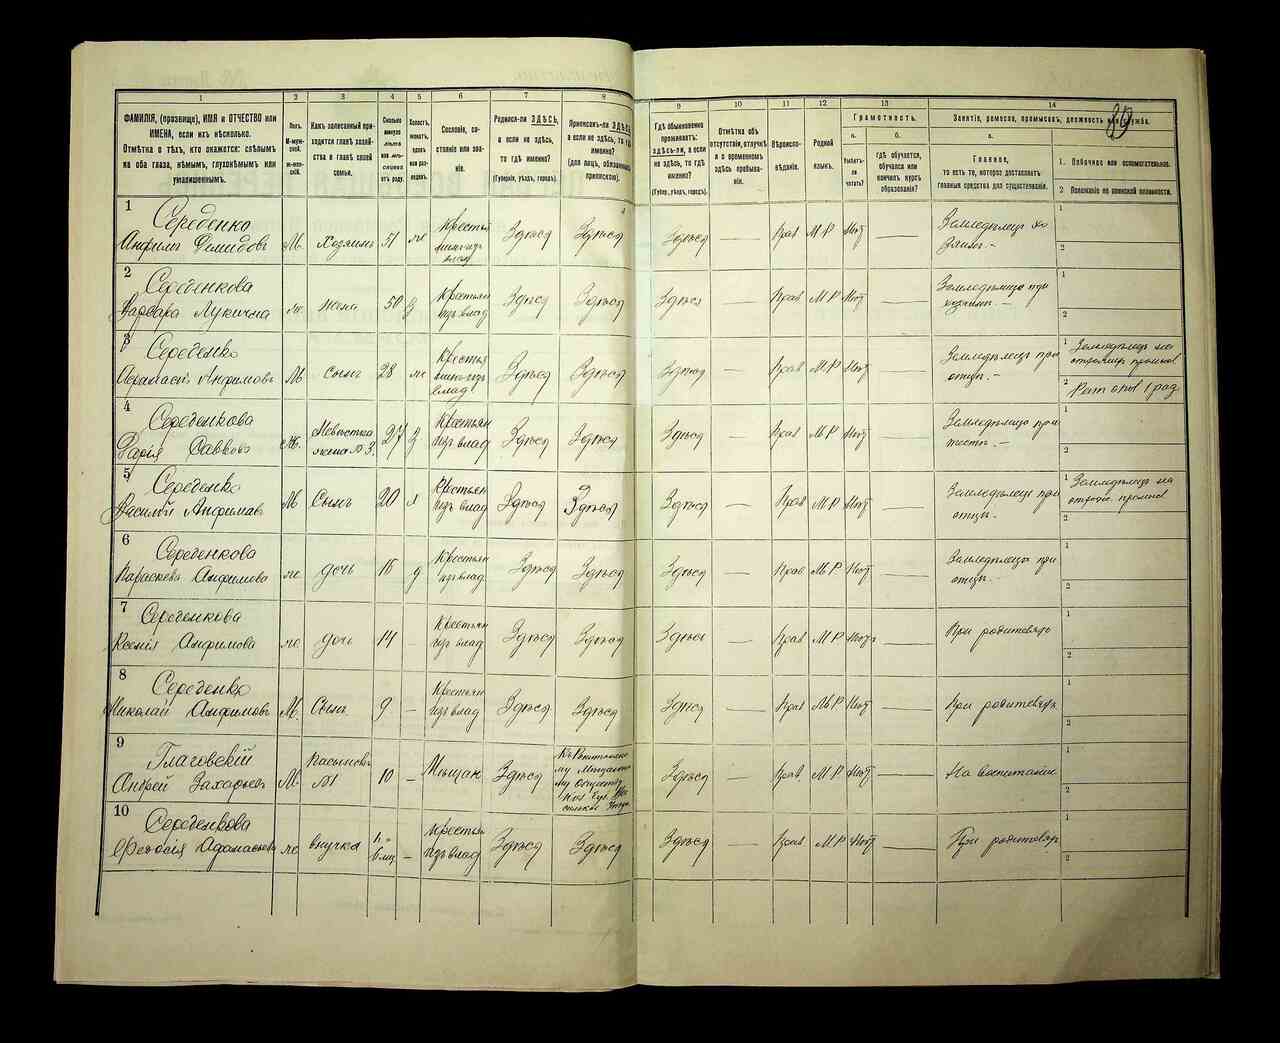 89
1
2
3
4
5
6
7
8
9
10
11
12
13
14
ФАМИЛІЯ, (прозвище), ИМЯ и ОТЧЕСТВО или
ИМЕНА, если ихъ нѣсколько.
Отмѣтка о тѣхъ, кто окажется: слѣпымъ
на оба глаза, нѣмымъ, глухонѣмымъ или
умалишеннымъ.
Полъ.
М-муж-
ской.
Ж-жен-
скій.
Какъ записанный при-
ходится главѣ хозяй-
ства и главѣ своей
семьи.
Сколько
минуло
лѣтъ
или мѣ-
сяцевъ
отъ роду.
Холостъ,
женатъ,
вдовъ
или раз-
веденъ.
Сословіе, со-
стояніе или зва-
ніе.
Родился-ли ЗДѢСЬ,
а если не здѣсь,
то гдѣ именно?
(Губернія, уѣздъ, городъ).
Приписанъ-ли ЗДѢСЬ,
а если не здѣсь, то гдѣ
именно?
(для лицъ, обязанныхъ
припискою).
Гдѣ обыкновенно
проживаетъ:
ЗДѢСЬ-ли, а если
не здѣсь, то гдѣ
именно?
(Губер., уѣздъ, городъ).
Отмѣтка объ
отсутствіи, отлучкѣ
и о временномъ
здѣсь пребыва-
ніи.
Вѣроиспо-
вѣданіе.
Родной
языкъ.
Грамотность.
а.
Умѣетъ-
ли
читать?
б.
гдѣ обучается,
обучался или
кончилъ курсъ
образованія?
Занятіе, ремесло, промыселъ, должность или служба.
а.
Главное,
то есть то, которое доставляетъ
главныя средства для существованія.
1. Побочное или вспомогательное.
2 Положеніе по воинской повинности.
1
Середенко
Анфимъ Демидовъ М. Хозяинъ 51 ж Крестьянинъ изъ влад Здѣсь Здѣсь Здѣсь — Прав М Р Нѣт — Земледѣлецъ хозяинъ.—
2
Середенкова
Варвара Лукична ж. жена 50 з Крестьян изъ влад Здѣсь Здѣсь Здѣсь — Прав М Р Нѣт — Земледѣлица при —
3
Середенко
Афанасій Анфимовъ М. Сынъ 28 ж Крестьянинъ изъ влад Здѣсь Здѣсь Здѣсь — Прав М Р Нѣт — Земледѣлецъ при отцѣ.—
Земледѣлецъ на
1 раз
4
Середенкова
Дарія Саввова Ж. Невѣстка жена № 3. 27 з Крестьян изъ влад Здѣсь Здѣсь Здѣсь — Прав М Р Нѣт — Земледѣлица при —
5
Середенко
Василій Анфимовъ М Сынъ 20 х Крестьян изъ влад Здѣсь Здѣсь Здѣсь — Прав М Р Нѣт — Земледѣлецъ при отцѣ.
Земледѣлецъ на
6
Середенкова
Параскева Анфимова ж дочь 16 д Крестьян изъ влад Здѣсь Здѣсь Здѣсь — Прав М Р Нѣт — Земледѣлица при отцѣ.—
7
Середенкова
Ксенія Анфимова ж дочь 14 - Крестьян изъ влад Здѣсь Здѣсь Здѣсь — Прав М Р Нѣт — При родителяхъ
8
Середенко
Николай Анфимовъ М. Сынъ 9 - Крестьян изъ влад Здѣсь Здѣсь Здѣсь — Прав М Р Нѣт — При родителяхъ
9
Глаговскій
Андрей Захарьевъ М. 10 - Мѣщан Здѣсь Здѣсь — Прав М Р Нѣт — На воспитаніи
10
Середенкова
Феодосія Афанасьева ж внучка - Крестьян изъ влад Здѣсь Здѣсь Здѣсь — Прав М Р Нѣт — При родителях